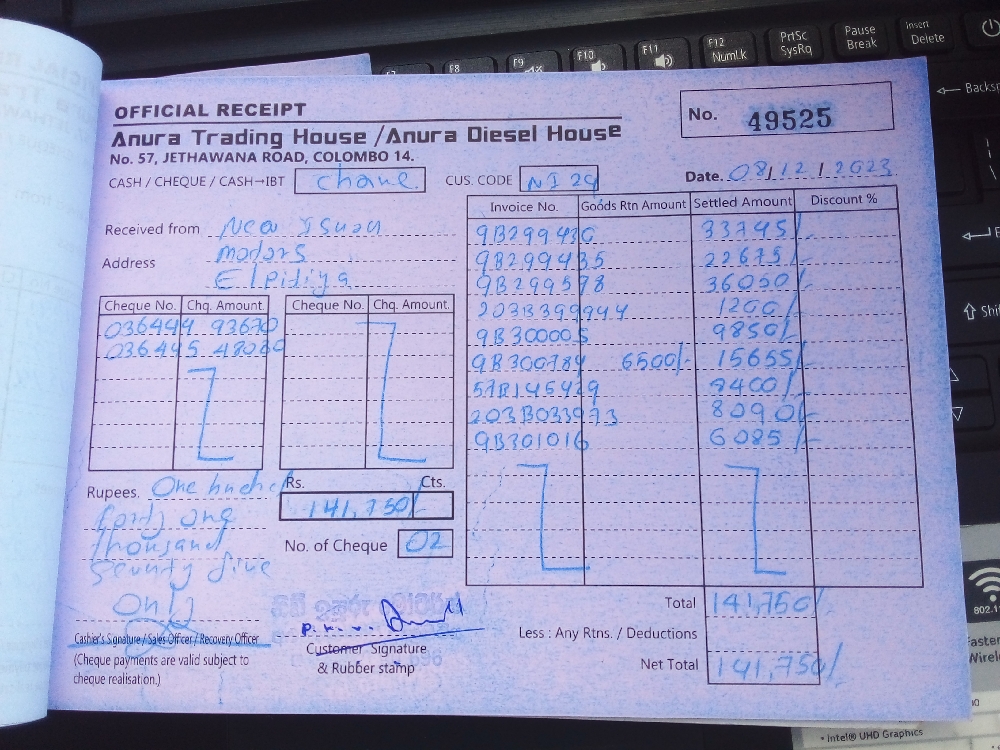 OFFICIAL RECEIPT
No. 49525
Anura Trading House /Anura Diesel House
No. 57, JETHAWANA ROAD, COLOMBO 14.
CASH / CHEQUE / CASH→IBT
CUS. CODE NI 29
Date. 08/12/2023
Received from New Isuzu
Address motors
Elpidiya
Invoice No. Goods Rtn Amount Settled Amount Discount %
9B299430 33745/-
9B299435 22675/-
9B299578 36050/-
203B399944 1200/-
9B300005 9850/-
9B300784 6500/- 15655/-
57B145429 8400/-
203B033973 8090/-
9B301016 6085/-
Cheque No. Chq. Amount. Cheque No. Chq. Amount.
036494 93670
036495 48080
Rupees.
forty one
thousand
seventy five
Only
Rs. Cts.
141,750/-
No. of Cheque 02
Total 141,750/-
Less : Any Rtns. / Deductions
Net Total 141,750/-
Cashier's Signature / Sales Officer / Recovery Officer
(Cheque payments are valid subject to
cheque realisation.)
Customer Signature
& Rubber stamp
F8 F9 F10 F11 F12
NumLk
PrtSc
SysRq
Pause
Break
Insert
Delete
802.11
• Intel® UHD Graphics